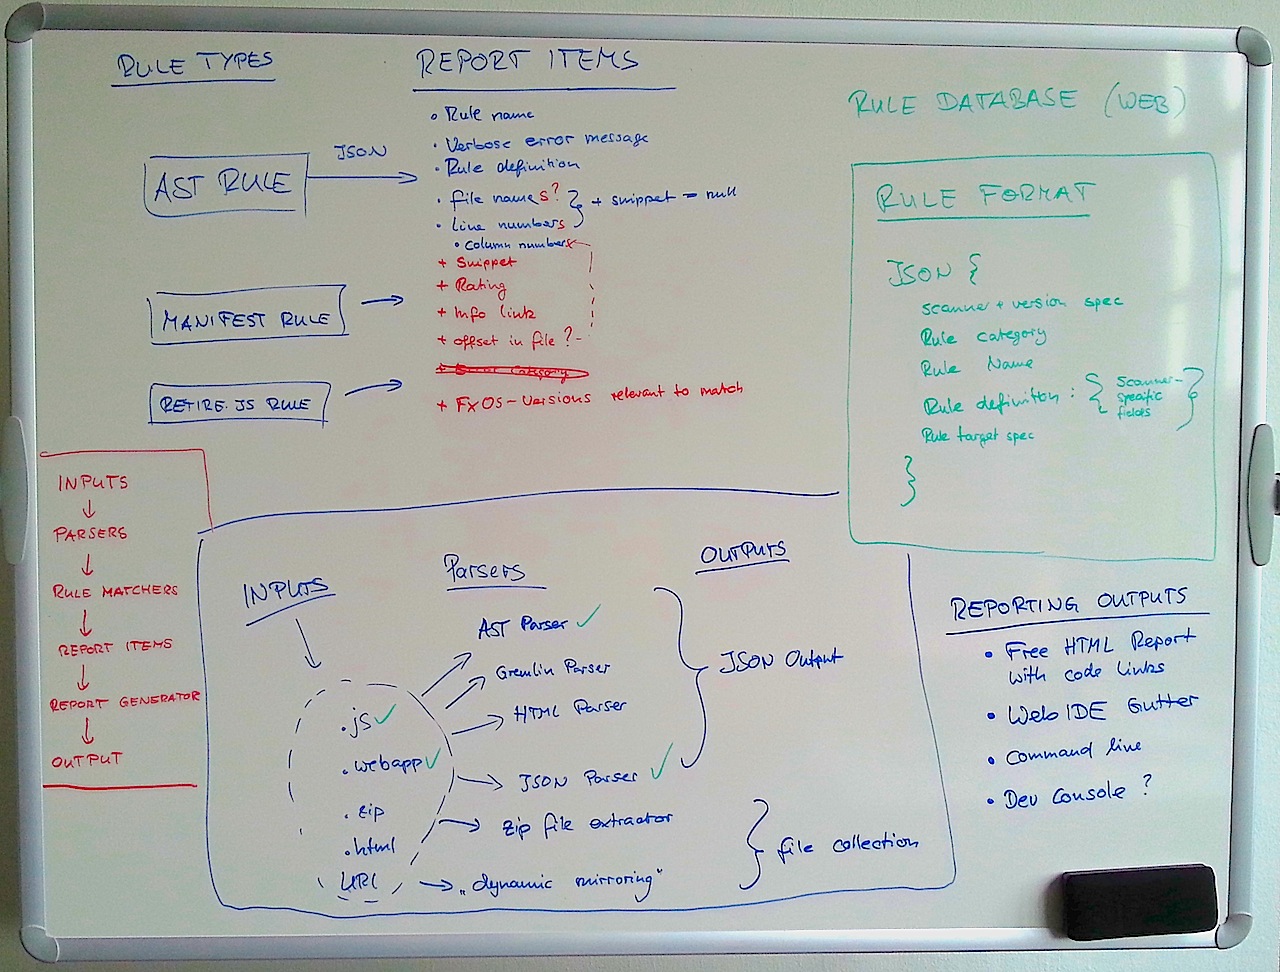 RULE TYPES
AST RULE
JSON
MANIFEST RULE
RETIRE.JS RULE
REPORT ITEMS
• Rule name
• Verbose error message
• Rule definition
• File names?
• Line numbers
} + snippet = null
• Column numbers
+ Snippet
+ Rating
+ Info link
+ offset in file?
+ Error Category
+ FxOS-versions relevant to match
RULE DATABASE (WEB)
RULE FORMAT
JSON {
scanner + version spec
Rule category
Rule Name
Rule definition : { Scanner-
specific
fields }
Rule target spec
}
INPUTS
↓
PARSERS
↓
RULE MATCHERS
↓
REPORT ITEMS
↓
REPORT GENERATOR
↓
OUTPUT
INPUTS
.js ✓
.webapp ✓
.zip
.html
URL
Parsers
AST Parser ✓
Gremlin Parser
HTML Parser
JSON Parser ✓
zip file extractor
„dynamic mirroring"
OUTPUTS
JSON Output
file collection
REPORTING OUTPUTS
• Free HTML Report
with code links
• Web IDE Gutter
• Command line
• Dev Console ?